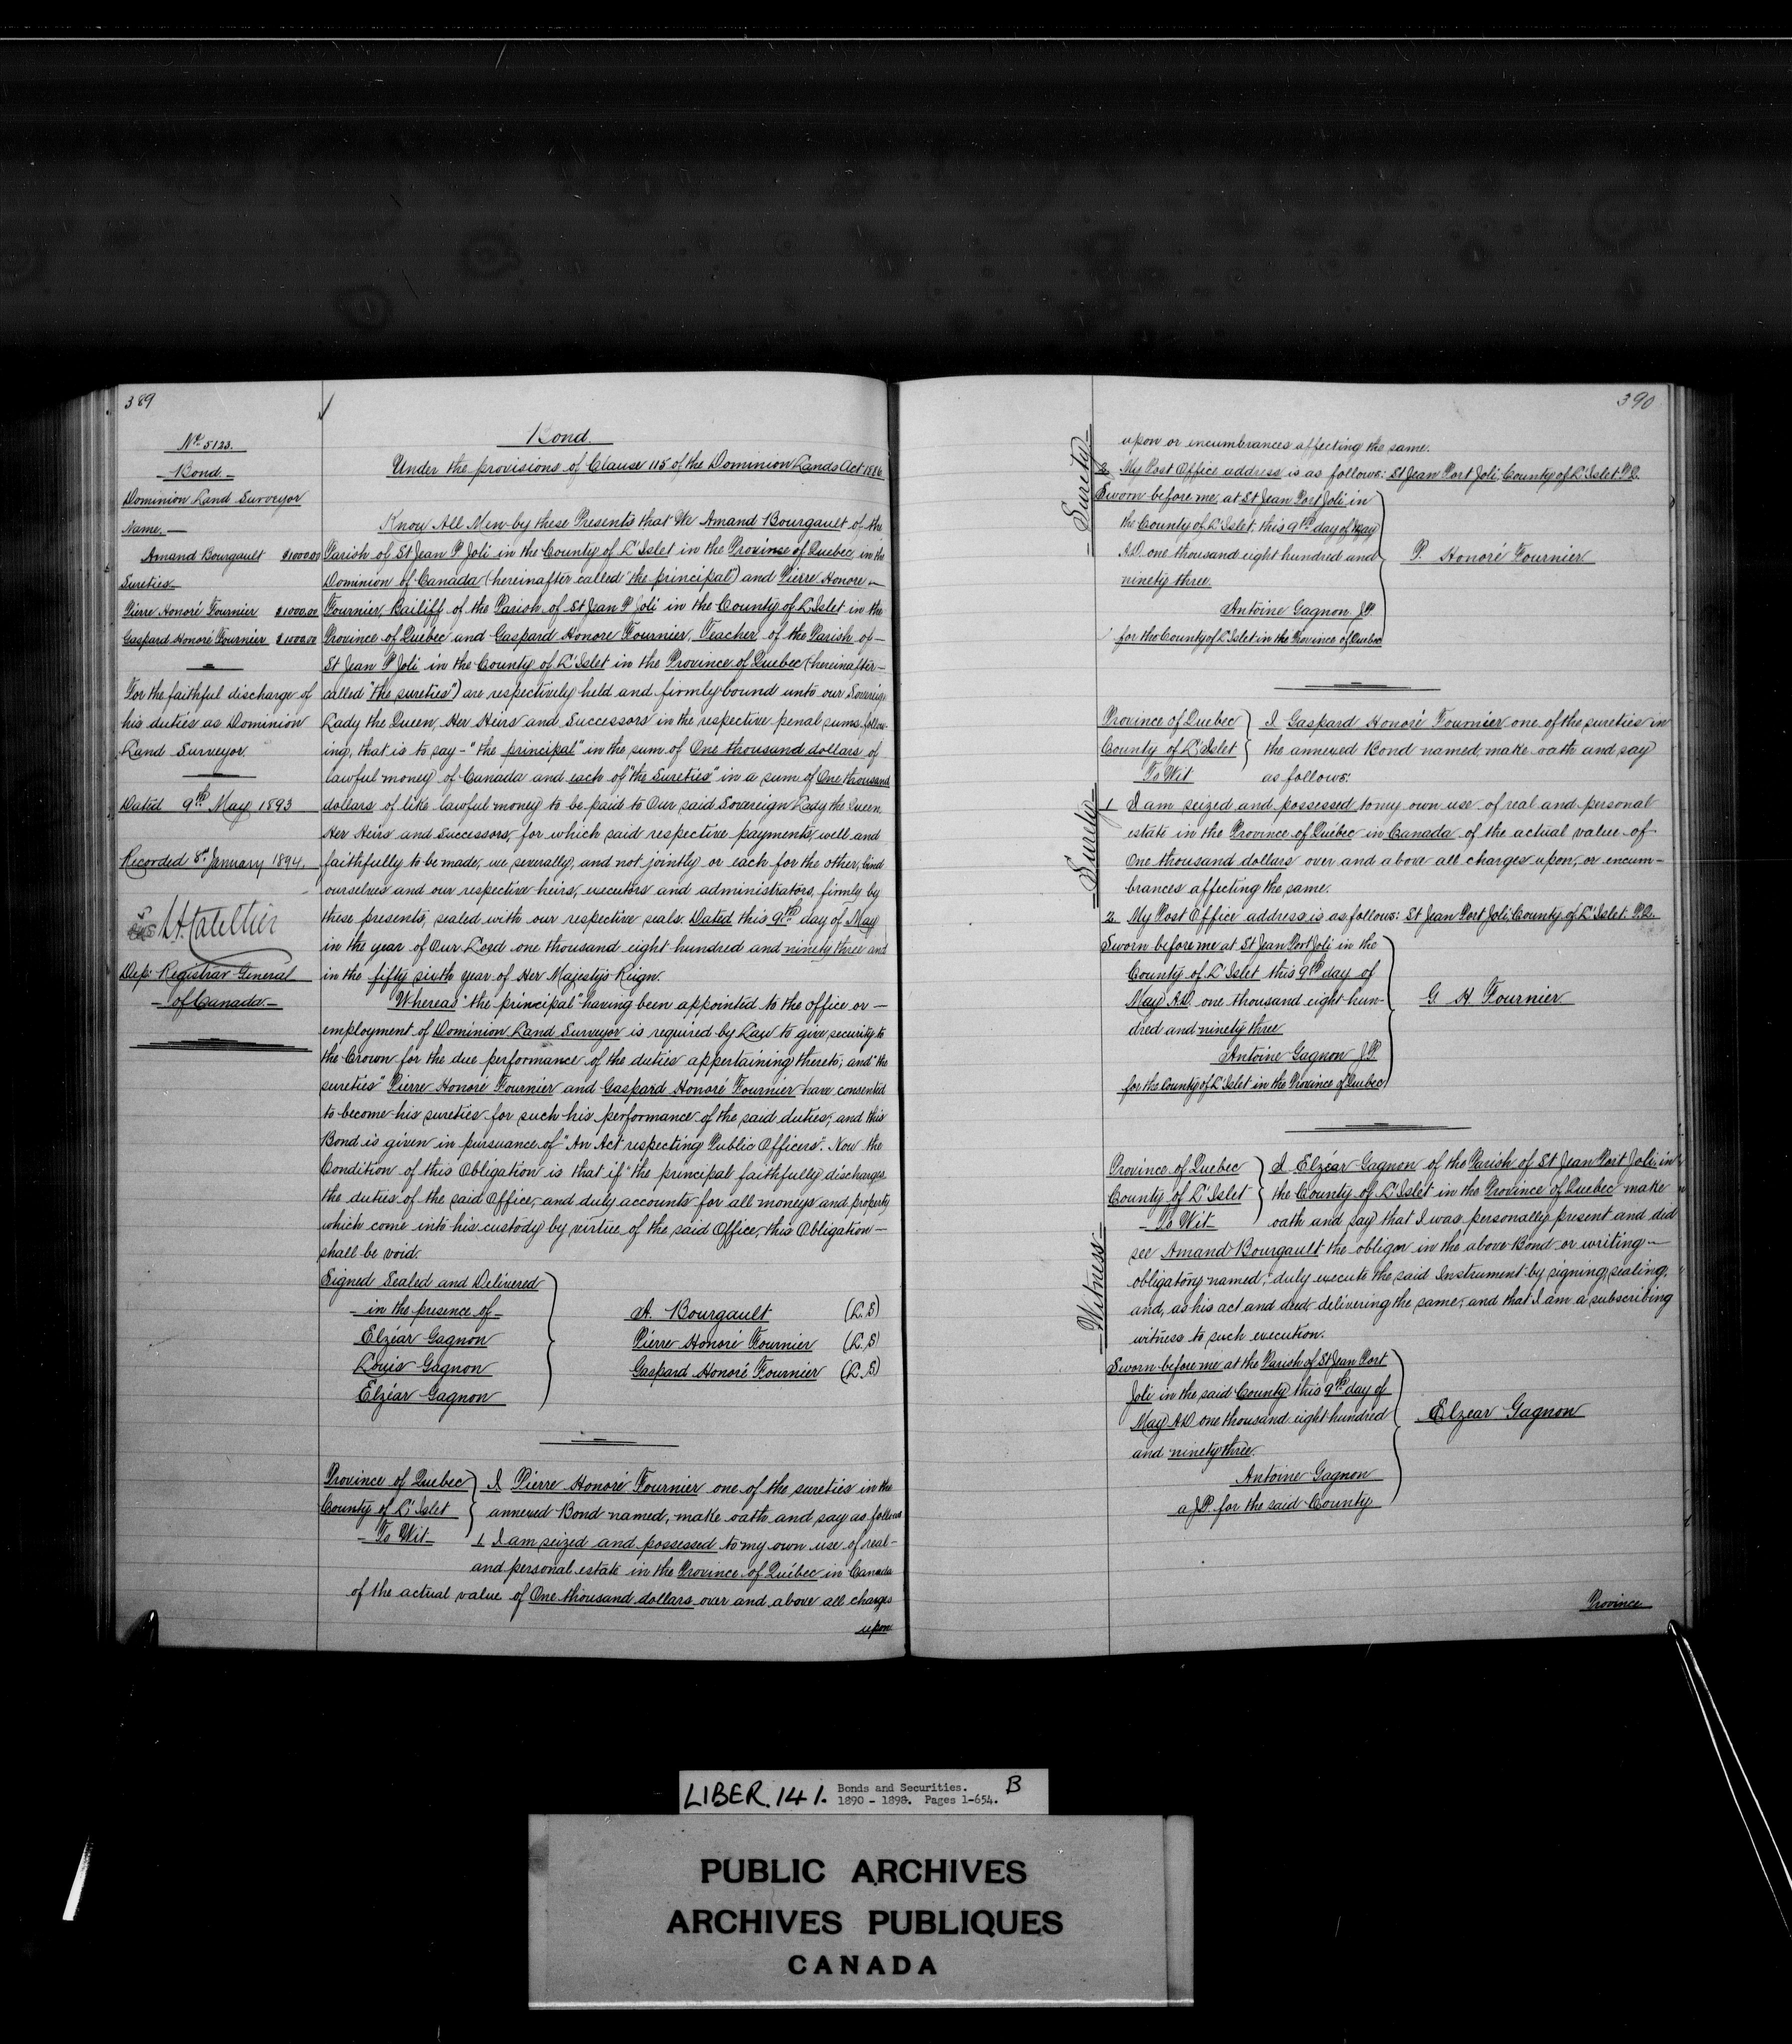 389
No. 5123.
Bond.
Dominion Land Surveyor
Name.
Amand Bourgault $1000.00
Sureties
Pierre Honoré Fournier $1000.00
Gaspard Honoré Fournier $1000.00
For the faithful discharge of
his duties as Dominion
Land Surveyor.
Dated 9th May 1893
Recorded 8th January 1894.
Dep: Registrar General
of Canada.
Bond.
Under the provisions of Clause 115 of the Dominion Lands Act 1886
Know All Men by these Presents that We Amand Bourgault of the
Parish of St Jean P Joli in the County of L'Islet in the Province of Quebec in the
Dominion of Canada (hereinafter called "the principal") and Pierre Honore
Fournier, Bailiff of the Parish of St Jean P Joli in the County of L'Islet in the
Province of Quebec and Gaspard Honore Fournier, Teacher, of the Parish of
St Jean P Joli in the County of L'Islet in the Province of Quebec (hereinafter
called "the sureties") are respectively held and firmly bound unto our Sovereign
Lady the Queen, Her Heirs and Successors in the respective penal sums follow-
ing, that is to say - "the principal" in the sum of One thousand dollars of
lawful money of Canada and each of "the Sureties" in a sum of One thousand
dollars of like lawful money to be paid to Our said Sovereign Lady the Queen
Her Heirs and Successors, for which said respective payments, well and
faithfully to be made, we severally, and not jointly or each for the other, bind
ourselves and our respective heirs, executors and administrators, firmly by
these presents, sealed with our respective seals. Dated this 9th day of May
in the year of Our Lord one thousand eight hundred and ninety three and
in the fifty sixth year of Her Majesty's Reign.
Whereas "the principal" having been appointed to the office or
employment of Dominion Land Surveyor is required by Law to give security to
the Crown for the due performance of the duties appertaining thereto; and "the
sureties" Pierre Honoré Fournier and Gaspard Honoré Fournier have consented
to become his sureties for such his performance of the said duties; and this
Bond is given in pursuance of "An Act respecting Public Officers". Now the
Condition of this Obligation is that if "the principal faithfully discharges
the duties of the said Office, and duly accounts for all moneys and property
which come into his custody by virtue of the said Office, this Obligation
shall be void.
Signed Sealed and Delivered
in the presence of
Elzéar Gagnon
Louis Gagnon
Elzéar Gagnon
A. Bourgault (L.S)
Pierre Honoré Fournier (L.S)
Gaspard Honoré Fournier (L.S)
Province of Quebec
County of L'Islet
To Wit
I Pierre Honoré Fournier one of the sureties in the
annexed Bond named, make oath and say as follows
1 I am seized and possessed to my own use of real
and personal estate in the Province of Québec in Canada
of the actual value of One thousand dollars over and above all charges
upon
390
Surety
upon or incumbrances affecting the same.
2 My Post Office address is as follows: St Jean Port Joli, County of L'Islet. P.Q.
Sworn before me, at St Jean Port Joli, in
the County of L'Islet, this 9th day of May
A.D. one thousand eight hundred and
ninety three.
Antoine Gagnon J.P
for the County of L'Islet in the Province of Quebec
P. Honoré Fournier
Surety
Province of Quebec
County of L'Islet
To Wit
I Gaspard Honoré Fournier one of the sureties in
the annexed Bond named, make oath and say
as follows:
1 I am seized and possessed to my own use of real and personal
estate in the Province of Québec in Canada of the actual value of
One thousand dollars over and above all charges upon, or encum-
brances affecting the same.
2 My Post Office address is as follows: St Jean Port Joli, County of L'Islet. P.Q.
Sworn before me at St Jean Port Joli in the
County of L'Islet this 9th day of
May A.D. one thousand eight hun-
dred and ninety three
Antoine Gagnon J.P
for the County of L'Islet in the Province of Quebec
G H Fournier
Witness
Province of Quebec
County of L'Islet
To Wit
I Elzéar Gagnon of the Parish of St Jean Port Joli, in
the County of L'Islet in the Province of Quebec make
oath and say that I was personally present and did
see Amand Bourgault the obligor in the above Bond or writing
obligatory named, duly execute the said Instrument by signing, sealing,
and, as his act and deed delivering the same, and that I am a subscribing
witness to such execution.
Sworn before me at the Parish of St Jean Port
Joli in the said County this 9th day of
May A.D one thousand eight hundred
and ninety three.
Antoine Gagnon
a J.P. for the said County
Elzear Gagnon
Province
LIBER.141. Bonds and Securities. B
1890 - 1898. Pages 1-654.
PUBLIC ARCHIVES
ARCHIVES PUBLIQUES
CANADA